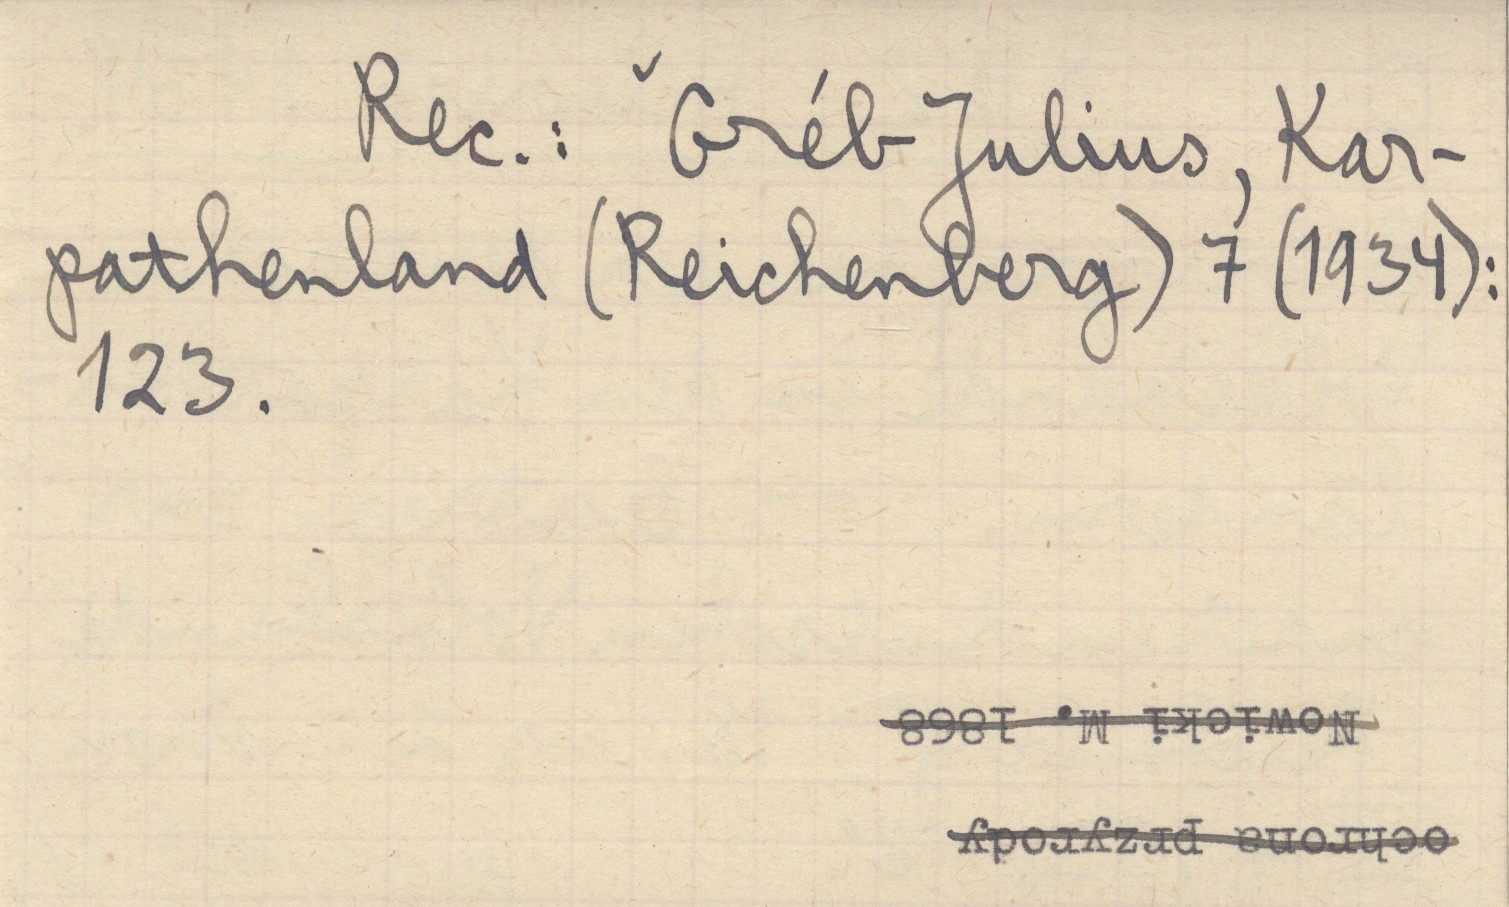 Rec.: ˇGréb Julius, Kar-
pathenland (Reichenberg) 7 (1934):
123.
Nowicki M. 1868
ochrona przyrody